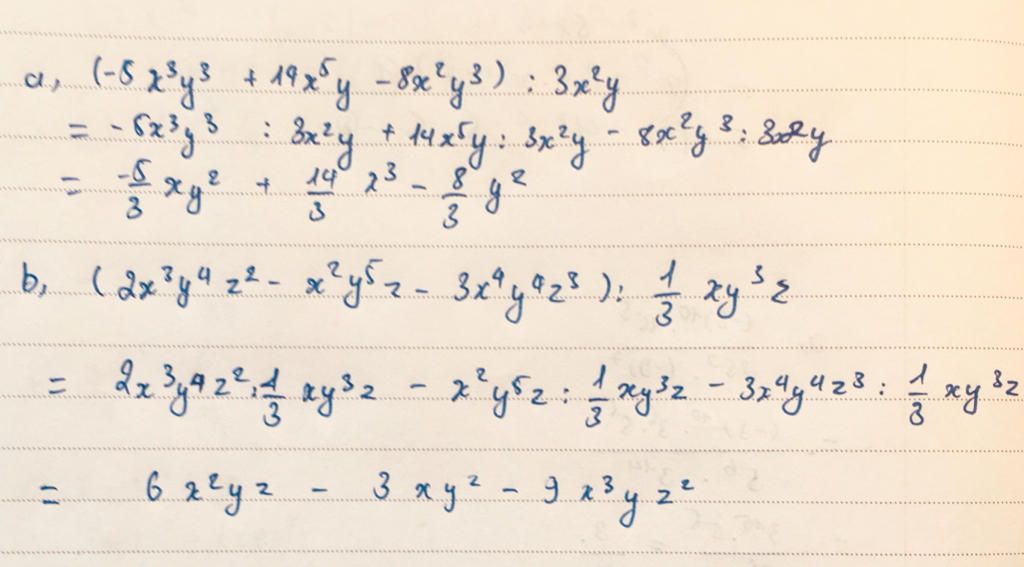 a, (-5x³y³ + 14x⁵y - 8x²y³) : 3x²y
= -5x³y³ : 3x²y + 14x⁵y : 3x²y - 8x²y³ : 3x²y
= -5/3 xy² + 14/3 x³ - 8/3 y²
b, (2x³y⁴z² - x²y⁵z - 3x⁴y⁴z³) : 1/3 xy³z
= 2x³y⁴z² : 1/3 xy³z - x²y⁵z : 1/3 xy³z - 3x⁴y⁴z³ : 1/3 xy³z
= 6x²yz - 3xy² - 9x³yz²